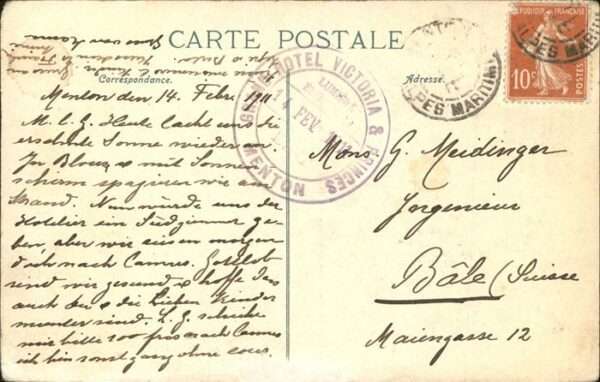 CARTE POSTALE
Correspondance.
Adresse.
RÉPUBLIQUE FRANÇAISE
10c
POSTES
ALPES MARITIMES
GRAND HOTEL VICTORIA & PRINCES
14 FEV
MENTON
Menton den 14. Febr. 1911
M. l. G. Heute lacht uns die
ersehnte Sonne wieder an.
In Blouse & mit Sonnen
schirm spazieren wir am
Strand. Nun würde uns der
Hotelier ein Südzimmer ge-
ben, aber wir reisen morgen
doch nach Cannes. Gottlob
sind wir gesund & hoffe dass
auch du & die lieben Kinder
munter sind. L. G. schicke
mir bitte 200 frs nach Cannes
ich bin sonst ganz ohne
Mons. G. Meidinger
Ingenieur
Bâle (Suisse
Maiengasse 12